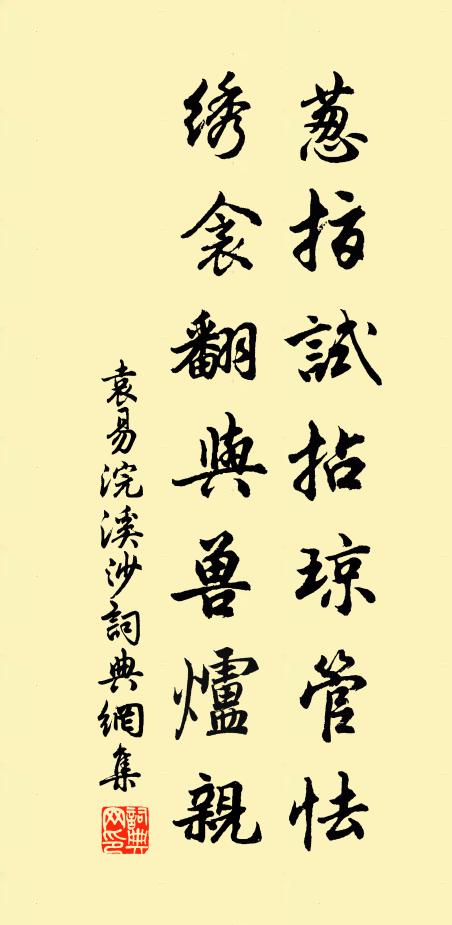 葱指試拈琼管怯
绣衾翻與兽爐親
袁易浣溪沙詞典網集
詞典網印